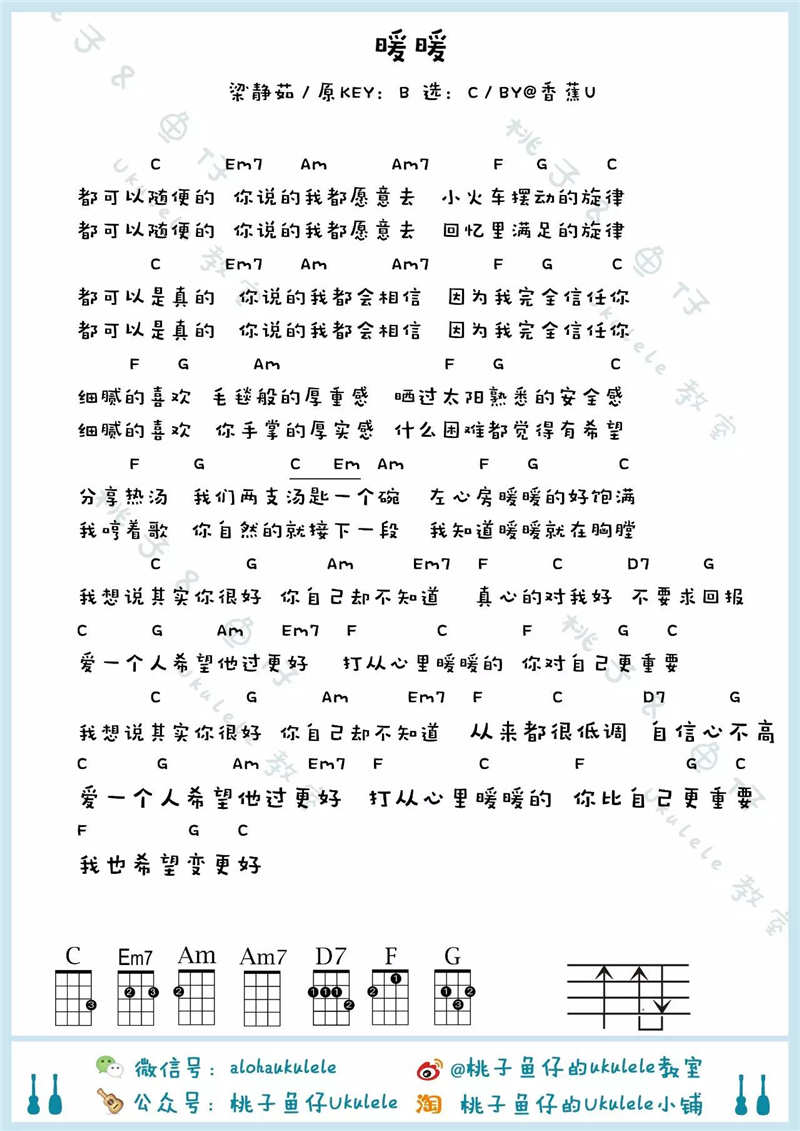 暖暖
梁静茹 / 原KEY：B 选：C / BY@香蕉U
C Em7 Am Am7 F G C
都可以随便的 你说的我都愿意去 小火车摆动的旋律
都可以随便的 你说的我都愿意去 回忆里满足的旋律
C Em7 Am Am7 F G C
都可以是真的 你说的我都会相信 因为我完全信任你
都可以是真的 你说的我都会相信 因为我完全信任你
F G Am F G C
细腻的喜欢 毛毯般的厚重感 晒过太阳熟悉的安全感
细腻的喜欢 你手掌的厚实感 什么困难都觉得有希望
F G C Em Am F G C
分享热汤 我们两支汤匙一个碗 左心房暖暖的好饱满
我哼着歌 你自然的就接下一段 我知道暖暖就在胸膛
C G Am Em7 F C D7 G
我想说其实你很好 你自己却不知道 真心的对我好 不要求回报
C G Am Em7 F C F G C
爱一个人希望他过更好 打从心里暖暖的 你对自己更重要
C G Am Em7 F C D7 G
我想说其实你很好 你自己却不知道 从来都很低调 自信心不高
C G Am Em7 F C F G C
爱一个人希望他过更好 打从心里暖暖的 你比自己更重要
F G C
我也希望变更好
C Em7 Am Am7 D7 F G
3 2 3 2 1 1 1 2 2 1 1 2 3
微信号：alohaukulele
@桃子鱼仔的ukulele教室
公众号：桃子鱼仔Ukulele
淘 桃子鱼仔的Ukulele小铺
桃子&鱼仔
Ukulele 教室
桃子&鱼仔
Ukulele 教室
桃子&鱼仔
Ukulele 教室
桃子&鱼仔
Ukulele 教室